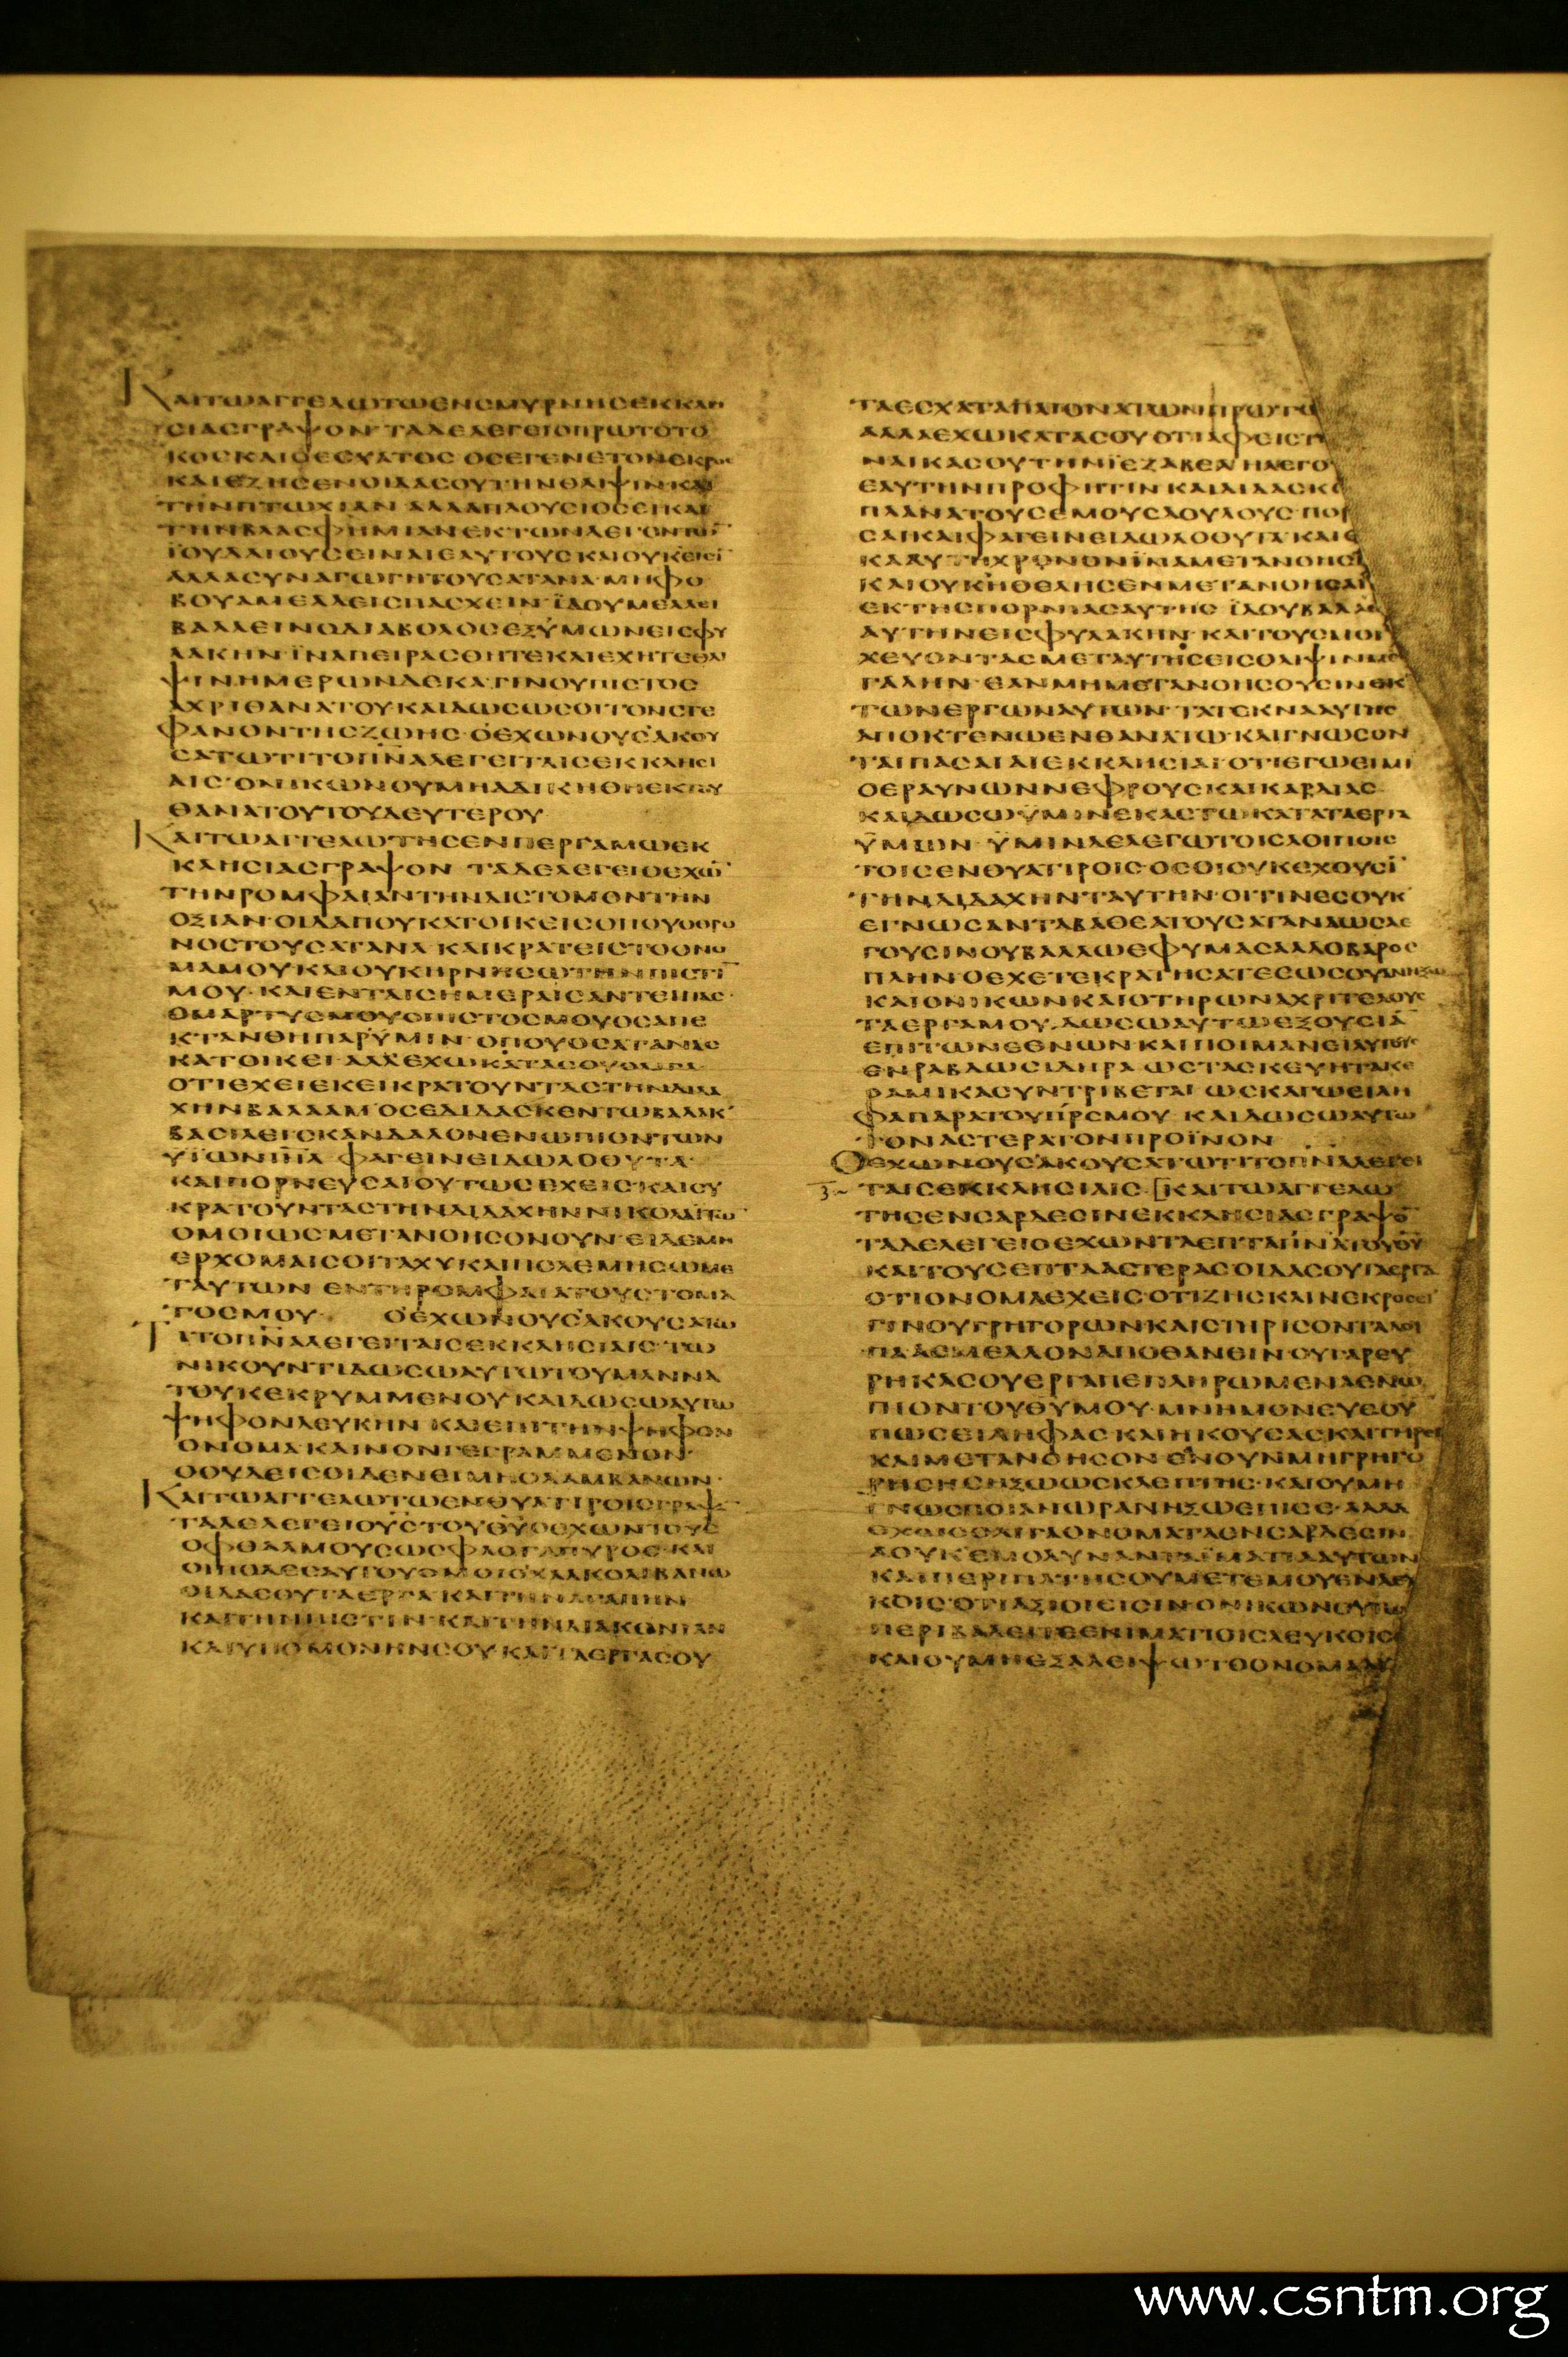 ΚΑΙΤΩΑΓΓΕΛΩΤΩΕΝϹΜΥΡΝΗϹΕΚΚΛΗ
ϹΙΑϹΓΡΑΨΟΝ ΤΑΔΕΛΕΓΕΙΟΠΡΩΤΟΤΟ
ΚΟϹΚΑΙΟΕϹΧΑΤΟϹ ΟϹΕΓΕΝΕΤΟΝΕΚΡΟϹ
ΚΑΙΕΖΗϹΕΝΟΙΔΑϹΟΥΤΗΝΘΛΙΨΙΝΚΑΙ
ΤΗΝΠΤΩΧΙΑΝ ΑΛΛΑΠΛΟΥϹΙΟϹΕΙΚΑΙ
ΤΗΝΒΛΑϹΦΗΜΙΑΝΕΚΤΩΝΛΕΓΟΝΤΩ̅
ΪΟΥΔΑΙΟΥϹΕΙΝΑΙΕΑΥΤΟΥϹΚΑΙΟΥΚΕΙϹΙ̅
ΑΛΛΑϹΥΝΑΓΩΓΗΤΟΥϹΑΤΑΝΑ·ΜΗΦΟ
ΒΟΥΑΜΕΛΛΕΙϹΠΑϹΧΕΙΝ·ΪΔΟΥΜΕΛΛΕΙ
ΒΑΛΛΕΙΝΟΔΙΑΒΟΛΟϹΕΞΫΜΩΝΕΙϹΦΥ
ΛΑΚΗΝ ΪΝΑΠΕΙΡΑϹΘΗΤΕΚΑΙΕΧΗΤΕΘΛΙ
ΨΙΝΗΜΕΡΩΝΔΕΚΑ·ΓΙΝΟΥΠΙϹΤΟϹ
ΑΧΡΙΘΑΝΑΤΟΥΚΑΙΔΩϹΩϹΟΙΤΟΝϹΤΕ
ΦΑΝΟΝΤΗϹΖΩΗϹ·ΟΕΧΩΝΟΥϹΑΚΟΥ
ϹΑΤΩΤΙΤΟΠ̅Ν̅ΑΛΕΓΕΙΤΑΙϹΕΚΚΛΗϹΙ
ΑΙϹ·ΟΝΙΚΩΝΟΥΜΗΑΔΙΚΗΘΗΕΚΤΟΥ
ΘΑΝΑΤΟΥΤΟΥΔΕΥΤΕΡΟΥ
ΚΑΙΤΩΑΓΓΕΛΩΤΗϹΕΝΠΕΡΓΑΜΩΕΚ
ΚΛΗϹΙΑϹΓΡΑΨΟΝ ΤΑΔΕΛΕΓΕΙΟΕΧΩ̅
ΤΗΝΡΟΜΦΑΙΑΝΤΗΝΔΙϹΤΟΜΟΝΤΗΝ
ΟΞΙΑΝ·ΟΙΔΑΠΟΥΚΑΤΟΙΚΕΙϹΟΠΟΥΟΘΡΟ
ΝΟϹΤΟΥϹΑΤΑΝΑ ΚΑΙΚΡΑΤΕΙϹΤΟΟΝΟ
ΜΑΜΟΥΚΑΙΟΥΚΗΡΝΗϹΩΤΗΝΠΙϹΤΙ̅
ΜΟΥ·ΚΑΙΕΝΤΑΙϹΗΜΕΡΑΙϹΑΝΤΕΙΠΑϹ·
ΟΜΑΡΤΥϹΜΟΥΟΠΙϹΤΟϹΜΟΥΟϹΑΠΕ
ΚΤΑΝΘΗΠΑΡΫΜΙΝ ΟΠΟΥΟϹΑΤΑΝΑϹ
ΚΑΤΟΙΚΕΙ·ΑΛΛΕΧΩΚΑΤΑϹΟΥΟΛΙΓΑ
ΟΤΙΕΧΕΙϹΕΚΕΙΚΡΑΤΟΥΝΤΑϹΤΗΝΔΙΔΑ
ΧΗΝΒΑΛΑΑΜ ΟϹΕΔΙΔΑϹΚΕΝΤΩΒΑΛΑΚ
ΒΑϹΙΛΕΙϹΚΑΝΔΑΛΟΝΕΝΩΠΙΟΝΤΩΝ
ΥΪΩΝΙ̅Η̅Λ̅ ΦΑΓΕΙΝΕΙΔΩΛΟΘΥΤΑ
ΚΑΙΠΟΡΝΕΥϹΑΙΟΥΤΩϹΕΧΕΙϹΚΑΙϹΥ
ΚΡΑΤΟΥΝΤΑϹΤΗΝΔΙΔΑΧΗΝΝΙΚΟΛΑΙΤΩ̅
ΟΜΟΙΩϹΜΕΤΑΝΟΗϹΟΝΟΥΝ·ΕΙΔΕΜΗ
ΕΡΧΟΜΑΙϹΟΙΤΑΧΥΚΑΙΠΟΛΕΜΗϹΩΜΕ
ΤΑΥΤΩΝ ΕΝΤΗΡΟΜΦΑΙΑΤΟΥϹΤΟΜΑ
ΤΟϹΜΟΥ· ΟΕΧΩΝΟΥϹΑΚΟΥϹΑΤΩ
ΤΙΤΟΠ̅Ν̅ΑΛΕΓΕΙΤΑΙϹΕΚΚΛΗϹΙΑΙϹ·ΤΩ
ΝΙΚΟΥΝΤΙΔΩϹΩΑΥΤΩΤΟΥΜΑΝΝΑ
ΤΟΥΚΕΚΡΥΜΜΕΝΟΥΚΑΙΔΩϹΩΑΥΤΩ
ΨΗΦΟΝΛΕΥΚΗΝ ΚΑΙΕΠΙΤΗΝΨΗΦΟΝ
ΟΝΟΜΑΚΑΙΝΟΝΓΕΓΡΑΜΜΕΝΟΝ·
ΟΟΥΔΕΙϹΟΙΔΕΝΕΙΜΗΟΛΑΜΒΑΝΩΝ·
ΚΑΙΤΩΑΓΓΕΛΩΤΩΕΝΘΥΑΤΙΡΟΙϹΓΡΑΨΟ̅
ΤΑΔΕΛΕΓΕΙΟΥ̅Ϲ̅ΤΟΥΘ̅Υ̅ΟΕΧΩΝΤΟΥϹ
ΟΦΘΑΛΜΟΥϹΩϹΦΛΟΓΑΠΥΡΟϹ·ΚΑΙ
ΟΙΠΟΔΕϹΑΥΤΟΥΟΜΟΙΟΙΧΑΛΚΟΛΙΒΑΝΩ
ΟΙΔΑϹΟΥΤΑΕΡΓΑ ΚΑΙΤΗΝΑΓΑΠΗΝ
ΚΑΙΤΗΝΠΙϹΤΙΝ·ΚΑΙΤΗΝΔΙΑΚΟΝΙΑΝ
ΚΑΙΥΠΟΜΟΝΗΝϹΟΥΚΑΙΤΑΕΡΓΑϹΟΥ
ΤΑΕϹΧΑΤΑΠΛΙΟΝΑΤΩΝΠΡΩΤΩ
ΑΛΛΑΕΧΩΚΑΤΑϹΟΥΟΤΙΑΦΕΙϹΤΗ
ΝΑΙΚΑϹΟΥΤΗΝΪΕΖΑΒΕΛ·ΗΛΕΓΟΥ
ΕΑΥΤΗΝΠΡΟΦΗΤΙΝ ΚΑΙΔΙΔΑϹΚΕ
ΠΛΑΝΑΤΟΥϹΕΜΟΥϹΔΟΥΛΟΥϹ·ΠΟΡ
ϹΑΙΚΑΙΦΑΓΕΙΝΕΙΔΩΛΟΘΥΤΑ·ΚΑΙΕ
ΚΑΑΥΤΗΧΡΟΝΟΝΪΝΑΜΕΤΑΝΟΗϹΗ
ΚΑΙΟΥΚΗΘΕΛΗϹΕΝΜΕΤΑΝΟΗϹΑΙ
ΕΚΤΗϹΠΟΡΝΙΑϹΑΥΤΗϹ·ΪΔΟΥΒΑΛΛΩ
ΑΥΤΗΝΕΙϹΦΥΛΑΚΗΝ·ΚΑΙΤΟΥϹΜΟΙ
ΧΕΥΟΝΤΑϹΜΕΤΑΥΤΗϹΕΙϹΘΛΙΨΙΝΜΕ
ΓΑΛΗΝ·ΕΑΝΜΗΜΕΤΑΝΟΗϹΟΥϹΙΝΕΚ
ΤΩΝΕΡΓΩΝΑΥΤΩΝ·ΤΑΤΕΚΝΑΑΥΤΗϹ
ΑΠΟΚΤΕΝΩΕΝΘΑΝΑΤΩ·ΚΑΙΓΝΩϹΟΝ
ΤΑΙΠΑϹΑΙΑΙΕΚΚΛΗϹΙΑΙ·ΟΤΙΕΓΩΕΙΜΙ
ΟΕΡΑΥΝΩΝΝΕΦΡΟΥϹΚΑΙΚΑΡΔΙΑϹ·
ΚΑΙΔΩϹΩΫΜΙΝΕΚΑϹΤΩ·ΚΑΤΑΤΑΕΡΓΑ
ΫΜΩΝ·ΫΜΙΝΔΕΛΕΓΩΤΟΙϹΛΟΙΠΟΙϹ
ΤΟΙϹΕΝΘΥΑΤΙΡΟΙϹ·ΟϹΟΙΟΥΚΕΧΟΥϹΙ̅
ΤΗΝΔΙΔΑΧΗΝΤΑΥΤΗΝ·ΟΙΤΙΝΕϹΟΥΚ
ΕΓΝΩϹΑΝΤΑΒΑΘΕΑΤΟΥϹΑΤΑΝΑΩϹΛΕ
ΓΟΥϹΙΝΟΥΒΑΛΛΩΕΦΥΜΑϹΑΛΛΟΒΑΡΟϹ
ΠΛΗΝΟΕΧΕΤΕΚΡΑΤΗϹΑΤΕΕΩϹΟΥΑΝΗΞΩ
ΚΑΙΟΝΙΚΩΝΚΑΙΟΤΗΡΩΝΑΧΡΙΤΕΛΟΥϹ
ΤΑΕΡΓΑΜΟΥ·ΔΩϹΩΑΥΤΩΕΞΟΥϹΙΑ̅
ΕΠΙΤΩΝΕΘΝΩΝ·ΚΑΙΠΟΙΜΑΝΕΙΑΥΤΟΥϹ
ΕΝΡΑΒΔΩϹΙΔΗΡΑ ΩϹΤΑϹΚΕΥΗΤΑΚΕ
ΡΑΜΙΚΑϹΥΝΤΡΙΒΕΤΑΙ·ΩϹΚΑΓΩΕΙΛΗ
ΦΑΠΑΡΑΤΟΥΠ̅Ρ̅Ϲ̅ΜΟΥ·ΚΑΙΔΩϹΩΑΥΤΩ
ΤΟΝΑϹΤΕΡΑΤΟΝΠΡΟΪΝΟΝ
ΟΕΧΩΝΟΥϹΑΚΟΥϹΑΤΩΤΙΤΟΠ̅Ν̅ΑΛΕΓΕΙ
3 ΤΑΙϹΕΚΚΛΗϹΙΑΙϹ·[ΚΑΙΤΩΑΓΓΕΛΩ
ΤΗϹΕΝϹΑΡΔΕϹΙΝΕΚΚΛΗϹΙΑϹΓΡΑΨΟ̅
ΤΑΔΕΛΕΓΕΙΟΕΧΩΝΤΑΕΠΤΑΠ̅Ν̅ΑΤΟΥΘ̅Υ̅
ΚΑΙΤΟΥϹΕΠΤΑΑϹΤΕΡΑϹ·ΟΙΔΑϹΟΥΤΑΕΡΓΑ
ΟΤΙΟΝΟΜΑΕΧΕΙϹ·ΟΤΙΖΗϹΚΑΙΝΕΚΡΟϹΕΙ
ΓΙΝΟΥΓΡΗΓΟΡΩΝΚΑΙϹΤΗΡΙϹΟΝΤΑΛΟΙ
ΠΑΑΕΜΕΛΛΟΝΑΠΟΘΑΝΕΙΝ·ΟΥΓΑΡΕΥ
ΡΗΚΑϹΟΥΕΡΓΑΠΕΠΛΗΡΩΜΕΝΑΕΝΩ
ΠΙΟΝΤΟΥΘ̅Υ̅ΜΟΥ·ΜΝΗΜΟΝΕΥΕΟΥ̅
ΠΩϹΕΙΛΗΦΑϹ·ΚΑΙΗΚΟΥϹΑϹΚΑΙΤΗΡΕΙ
ΚΑΙΜΕΤΑΝΟΗϹΟΝ·ΕΑΝΟΥΝΜΗΓΡΗΓΟ
ΡΗϹΗϹΗΞΩΩϹΚΛΕΠΤΗϹ·ΚΑΙΟΥΜΗ
ΓΝΩϹΠΟΙΑΝΩΡΑΝΗΞΩΕΠΙϹΕ·ΑΛΛΑ
ΕΧΕΙϹΟΛΙΓΑΟΝΟΜΑΤΑΕΝϹΑΡΔΕϹΙΝ
ΑΟΥΚΕΜΟΛΥΝΑΝΤΑΪΜΑΤΙΑΑΥΤΩΝ
ΚΑΙΠΕΡΙΠΑΤΗϹΟΥΜΕΤΕΜΟΥΕΝΛΕΥ
ΚΟΙϹ·ΟΤΙΑΞΙΟΙΕΙϹΙΝ·ΟΝΙΚΩΝΟΥΤΩ
ΠΕΡΙΒΑΛΕΙΤΕΕΝΙΜΑΤΙΟΙϹΛΕΥΚΟΙϹ
ΚΑΙΟΥΜΗΕΞΑΛΕΙΨΩΤΟΟΝΟΜΑΑΥ
www.csntm.org